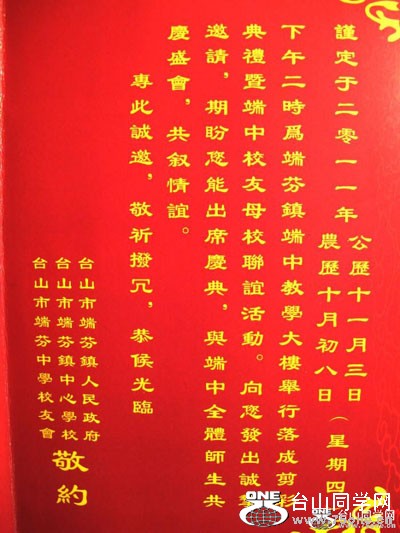 謹定于二零一一年
公曆十一月三日
農曆十月初八日
（星期四
下午二時爲端芬鎮端中教學大樓舉行落成剪彩
典禮暨端中校友母校聯誼活動。向您發出誠摯
邀請，期盼您能出席慶典，與端中全體師生共
慶盛會，共叙情誼。
專此誠邀，敬祈撥冗，恭候光臨
台山市端芬鎮人民政府
台山市端芬鎮中心學校
台山市端芬中學校友會
敬約
ONE
台山同学网